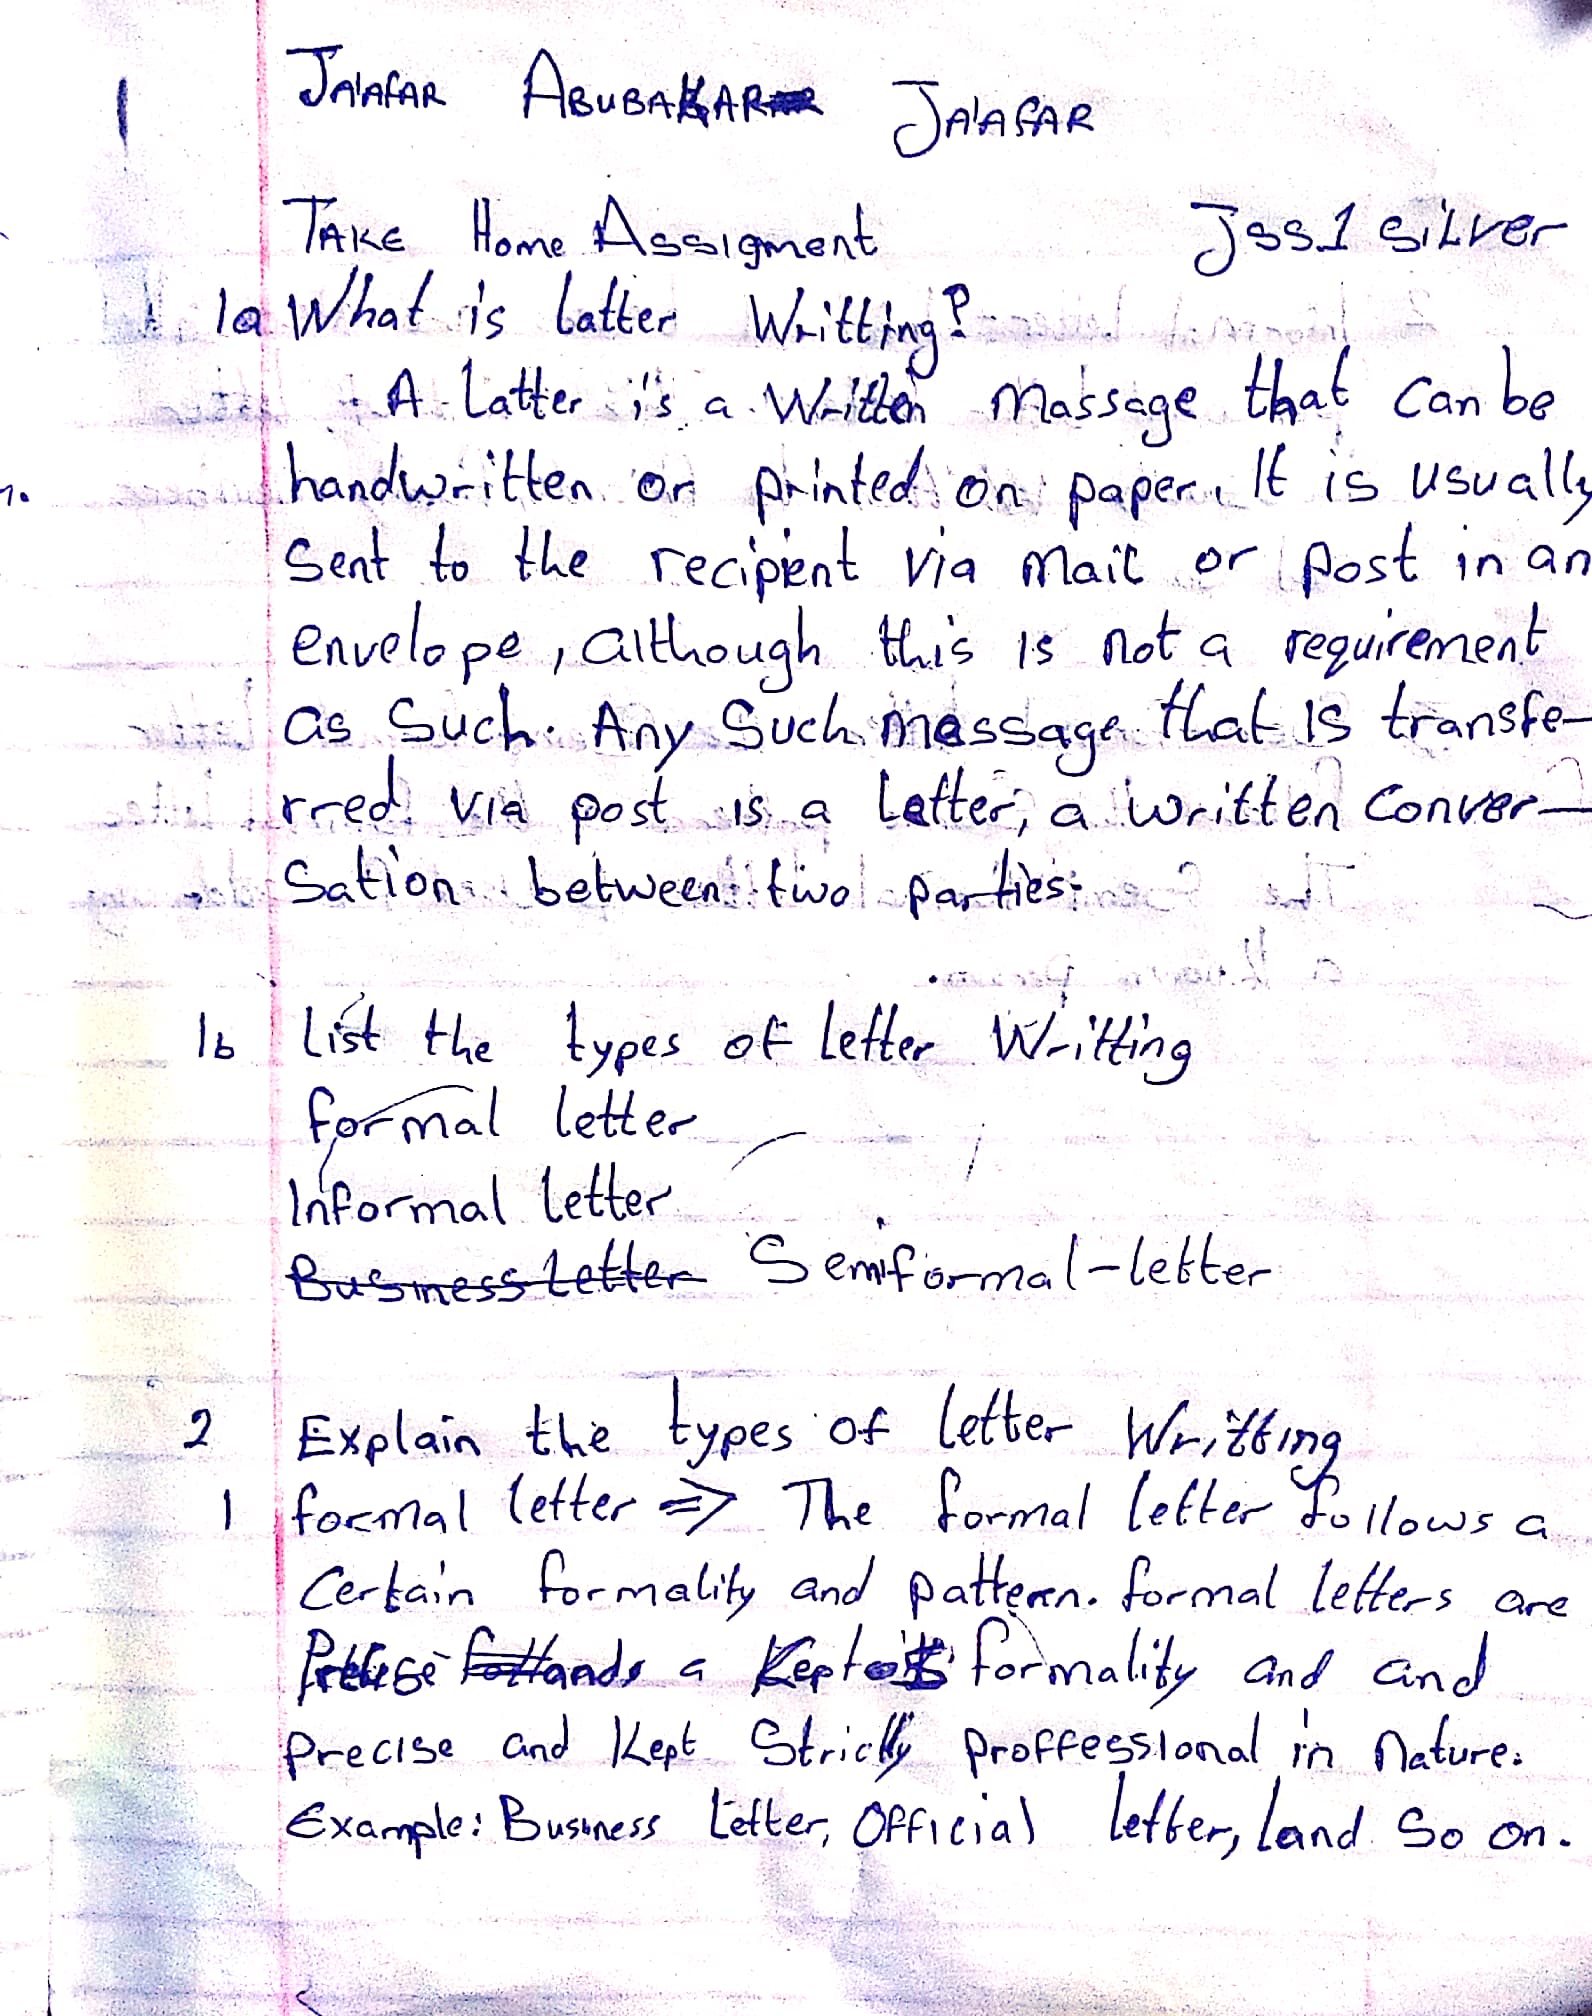 1
JA'AFAR ABUBAKAR JA'AFAR
TAKE Home Assigment Jss1 SiLver
1a What is latter Writting?
A Latter is a Written Massage that can be
handwritten or printed on paper. It is usually
Sent to the recipient via mail or post in an
envelope, although this is not a requirement
as Such. Any Such message that is transfe-
rred via post is a letter, a written conver-
sation between two parties.
1b List the types of letter Writting
formal letter
Informal letter
Business Letter Semiformal-letter
2 Explain the types of letter Writting
1 formal letter => The formal letter follows a
Certain formality and pattern. formal letters are
a Kept formality and and
precise and Kept Strictly proffessional in Nature.
Example: Business Letter, Official letter, land So on.